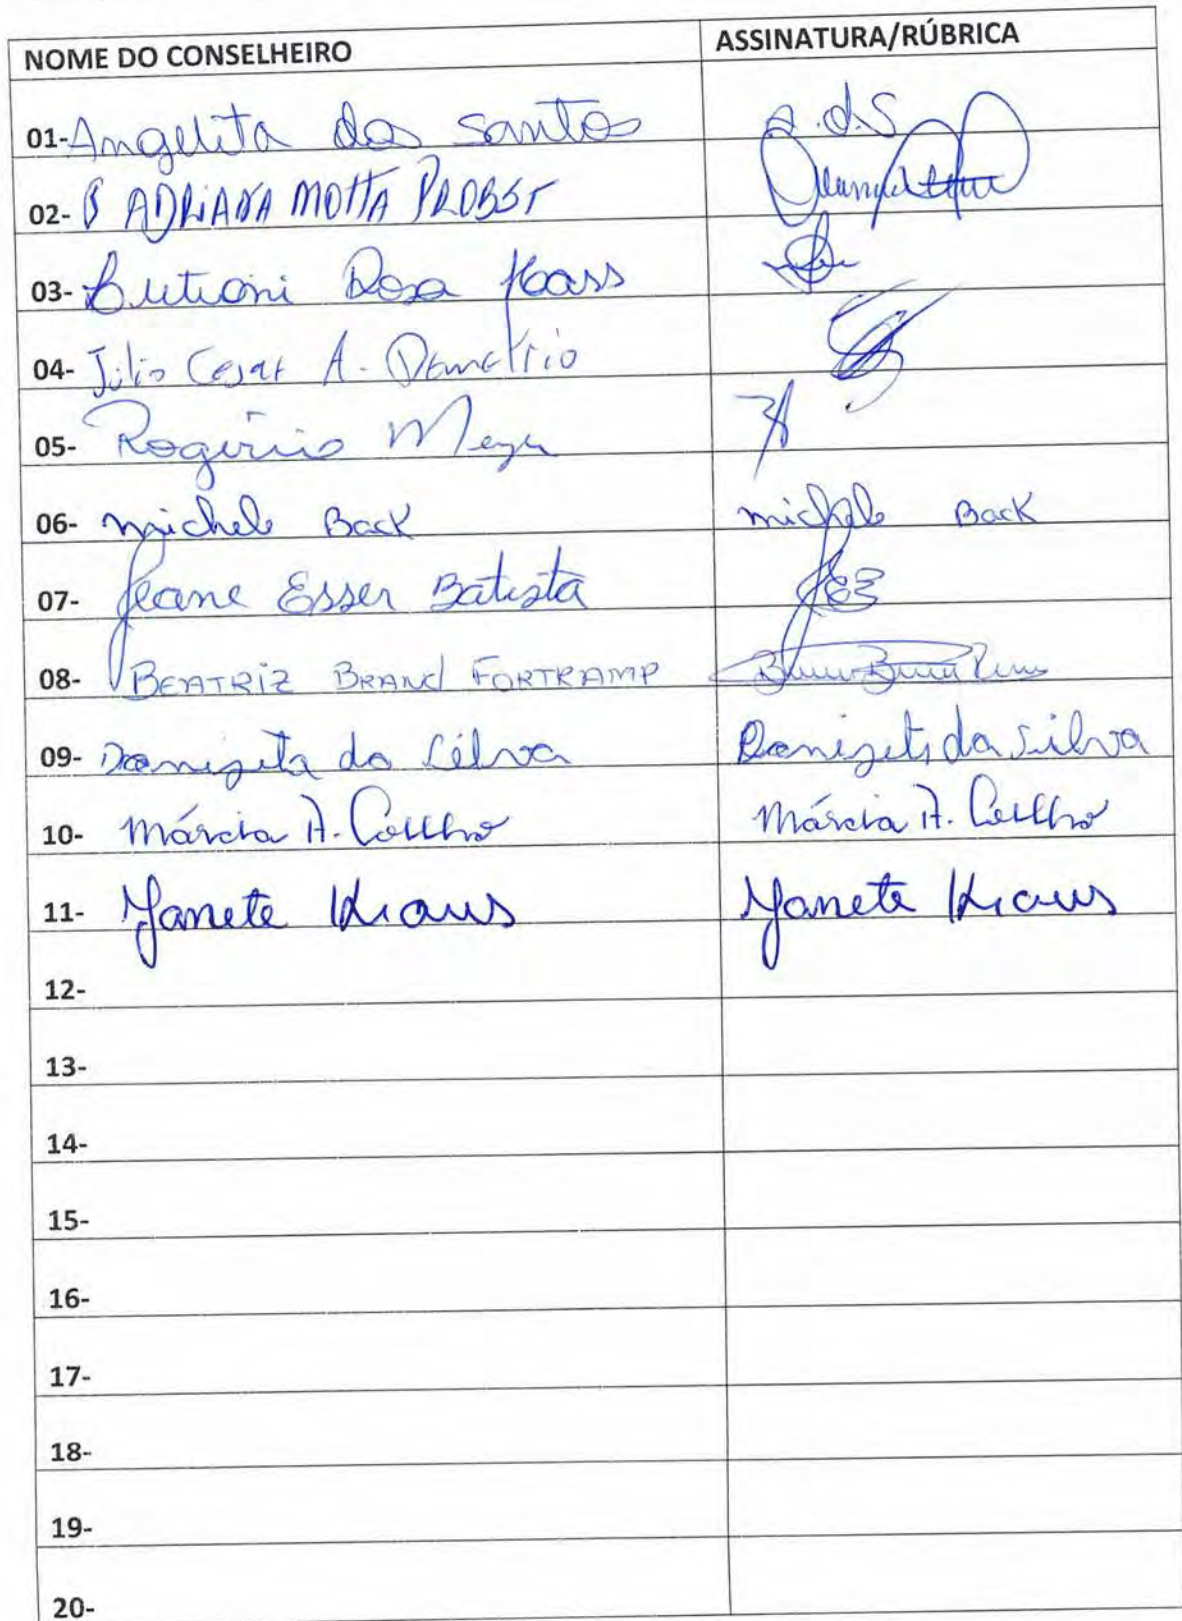 NOME DO CONSELHEIRO ASSINATURA/RÚBRICA
01- Angelita dos Santos a.d.S
02- ADRIANA MOTTA PROBST
03- Rosa Haass
04- Julio Cesar A. Demetrio
05- Rogério Meyer
06- michele Back michele Back
07- Jeane Esser Batista JEB
08- BEATRIZ BRAND FORTKAMP
09- Donizeta da Silva Donizeti da Silva
10- Márcia A. Coelho Márcia A. Coelho
11- Janete Kraus Janete Kraus
12-
13-
14-
15-
16-
17-
18-
19-
20-